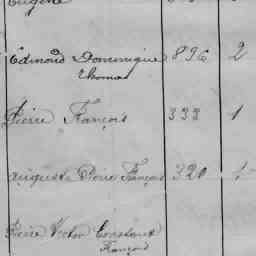 Eugène
Edmond Dominique 896 2
Thomas
Pierre François 333 1
Auguste Pierre François 320 1
Pierre Victor Constant
François